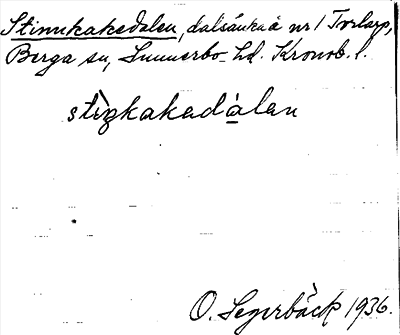 Stinnkakedalen, dalsänka å nr 1 Torlarp,
Berga sn, Sunnerbo hd. Kronob. l.
stiŋkakadàlan
O. Segerbäck 1936.